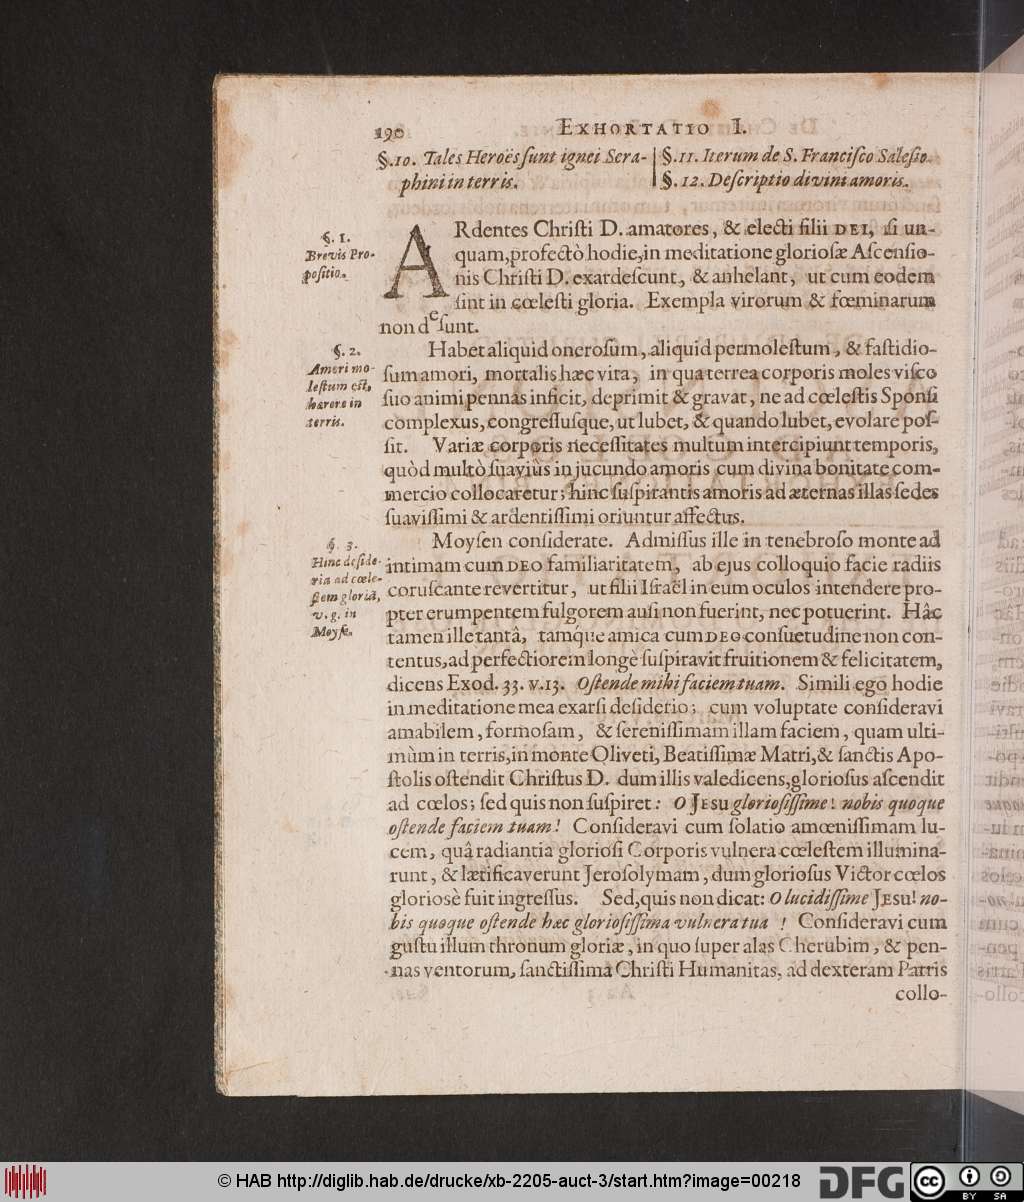 190
EXHORTATIO I.
§.10. Tales Heroës ſunt ignei Sera-
phini in terris.
§.11. Iterum de S. Franciſco Saleſio.
§. 12. Deſcriptio divini amoris.
§. 1.
Brevis Pro-
poſitio.
ARdentes Chriſti D. amatores, & electi filii DEI, ſi un-
quam, profectò hodie, in meditatione glorioſæ Aſcenſio-
nis Chriſti D. exardeſcunt, & anhelant, ut cum eodem
ſint in cœleſti gloria. Exempla virorum & fœminarum
non deſunt.
§. 2.
Amori mo-
leſtum eſt,
hærere in
terris.
Habet aliquid oneroſum, aliquid permoleſtum, & faſtidio-
ſum amori, mortalis hæc vita, in qua terrea corporis moles viſco
ſuo animi pennas inficit, deprimit & gravat, ne ad cœleſtis Sponſi
complexus, congreſſuſque, ut lubet, & quando lubet, evolare poſ-
ſit. Variæ corporis neceſſitates multum intercipiunt temporis,
quòd multò ſuaviùs in jucundo amoris cum divina bonitate com-
mercio collocaretur; hinc ſuſpirantis amoris ad æternas illas ſedes
ſuaviſſimi & ardentiſſimi oriuntur affectus.
§. 3.
Hinc deſide-
ria ad cœle-
ſtem gloriã,
v. g. in
Moyſe.
Moyſen conſiderate. Admiſſus ille in tenebroſo monte ad
intimam cum DEO familiaritatem, ab ejus colloquio facie radiis
coruſcante revertitur, ut filii Iſraël in eum oculos intendere pro-
pter erumpentem fulgorem auſi non fuerint, nec potuerint. Hâc
tamen ille tantâ, tamq́ue amica cum DEO conſuetudine non con-
tentus, ad perfectiorem longè ſuſpiravit fruitionem & felicitatem,
dicens Exod. 33. v. 13. Oſtende mihi faciem tuam. Simili ego hodie
in meditatione mea exarſi deſiderio; cum voluptate conſideravi
amabilem, formoſam, & ſereniſſimam illam faciem, quam ulti-
mùm in terris, in monte Oliveti, Beatiſſimæ Matri, & ſanctis Apo-
ſtolis oſtendit Chriſtus D. dum illis valedicens, glorioſus aſcendit
ad cœlos; ſed quis non ſuſpiret: O JESU glorioſiſſime! nobis quoque
oſtende faciem tuam! Conſideravi cum ſolatio amœniſſimam lu-
cem, quâ radiantia glorioſi Corporis vulnera cœleſtem illumina-
runt, & lætificaverunt Jeroſolymam, dum glorioſus Victor cœlos
glorioſè fuit ingreſſus. Sed, quis non dicat: O lucidiſſime JESU! no-
bis quoque oſtende hæc glorioſiſſima vulnera tua ! Conſideravi cum
guſtu illum thronum gloriæ, in quo ſuper alas Cherubim, & pen-
nas ventorum, ſanctiſſima Chriſti Humanitas, ad dexteram Patris
collo-
© HAB http://diglib.hab.de/drucke/xb-2205-auct-3/start.htm?image=00218
DFG
cc
BY SA